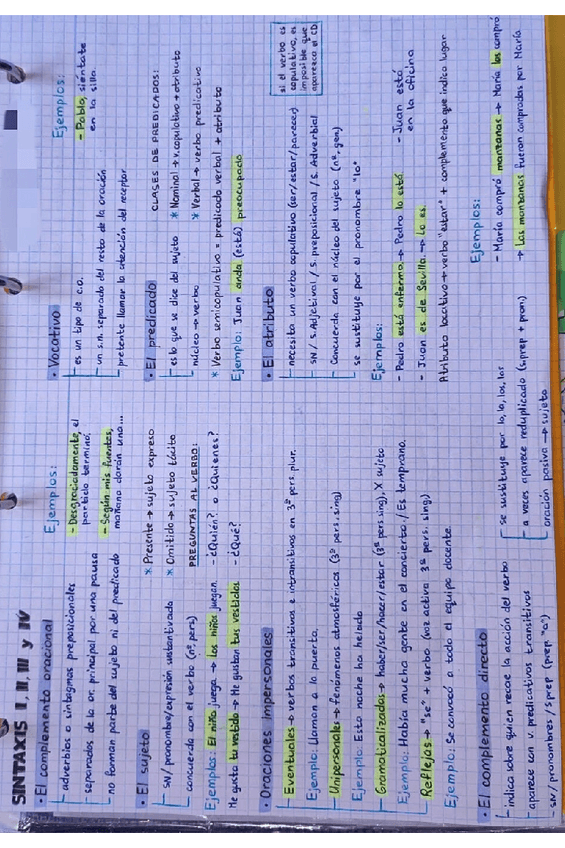 SINTAXIS I, II, III y IV
• El complemento oracional
adverbios o sintagmas preposicionales
separados de la or. principal por una pausa
no forman parte del sujeto ni del predicado
Ejemplos:
- Desgraciadamente, el
partido terminó.
- Según mis fuentes,
mañana darán una...
• El sujeto
SN/pronombre/expresión sustantivada
concuerda con el verbo (nº, pers)
* Presente → sujeto expreso
* Omitido → sujeto tácito
PREGUNTAS AL VERBO:
Ejemplos: El niño juega → Los niños juegan. - ¿Quién? o ¿Quienes?
Me gusta tu vestido → Me gustan tus vestidos - ¿Qué?
• Oraciones impersonales
Eventuales → verbos transitivos e intransitivos en 3ª pers. plur.
Ejemplo: Llaman a la puerta.
Unipersonales → fenómenos atmosféricos (3ª pers. sing)
Ejemplo: Esta noche ha helado
Gramaticalizadas → haber/ser/hacer/estar (3ª pers. sing), X sujeto
Ejemplo: Había mucha gente en el concierto. / Es temprano.
Reflejas → "se" + verbo (voz activa 3ª pers. sing)
Ejemplo: Se convocó a todo el equipo docente.
• El complemento directo
indica sobre quien recae la acción del verbo
aparece con v. predicativos transitivos
SN / pronombres / sprep (prep "a")
se sustituye por lo, la, los, las
a veces aparece reduplicado (s.prep + pron)
oración pasiva → sujeto
• Vocativo
es un tipo de c.o.
un s.n. separado del resto de la oración
pretente llamar la atención del receptor
Ejemplos:
- Pablo, siéntate
en la silla.
• El predicado
es lo que se dice del sujeto
núcleo → verbo
CLASES DE PREDICADOS:
* Nominal → v. copulativo + atributo
* Verbal → verbo predicativo
* Verbo semicopulativo = predicado verbal + atributo
Ejemplo: Juan anda (está) preocupado
• El atributo
necesita un verbo copulativo (ser/estar/parecer)
SN / S. Adjetival / S. preposicional / S. Adverbial
Concuerda con el núcleo del sujeto (nº, gen)
se sustituye por el pronombre "lo"
si el verbo es
copulativo, es
imposible que
aparezca el CD
Ejemplos:
- Pedro está enfermo → Pedro lo está
- Juan es de Sevilla. → Lo es.
- Juan está
en la oficina
Atributo locativo → verbo "estar" + complemento que indica lugar
Ejemplos:
- María compró manzanas → María las compró
→ Las manzanas fueron compradas por María.